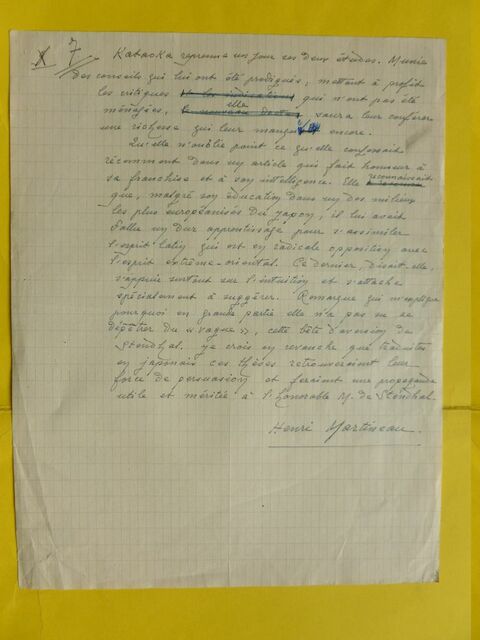 7
Kataoka reprenne un jour ses deux études. Munie
des conseils qui lui ont été prodigués, mettant à profit
les critiques qui n'ont pas été
ménagées, elle saura leur conférer
une richesse qui leur manque encore.
Qu'elle n'oublie point ce qu'elle confessait
récemment dans un article qui fait honneur à
sa franchise et à son intelligence. Elle reconnaissait
que, malgré son éducation dans un des milieux
les plus européanisés du Japon, il lui avait
fallu un dur apprentissage pour s'assimiler
l'esprit latin qui est en radicale opposition avec
l'esprit extrême-oriental. Ce dernier, disait-elle,
s'appuie surtout sur l'intuition et s'attache
spécialement à suggérer. Remarque qui m'explique
pourquoi en grande partie elle n'a pas su se
dépêtrer du « vague », cette bête d'aversion de
Stendhal. Je crois en revanche que traduites
en japonais ces thèses retrouveraient leur
force de persuasion et feraient une propagande
utile et méritée à l'honorable M. de Stendhal.
Henri Martineau.